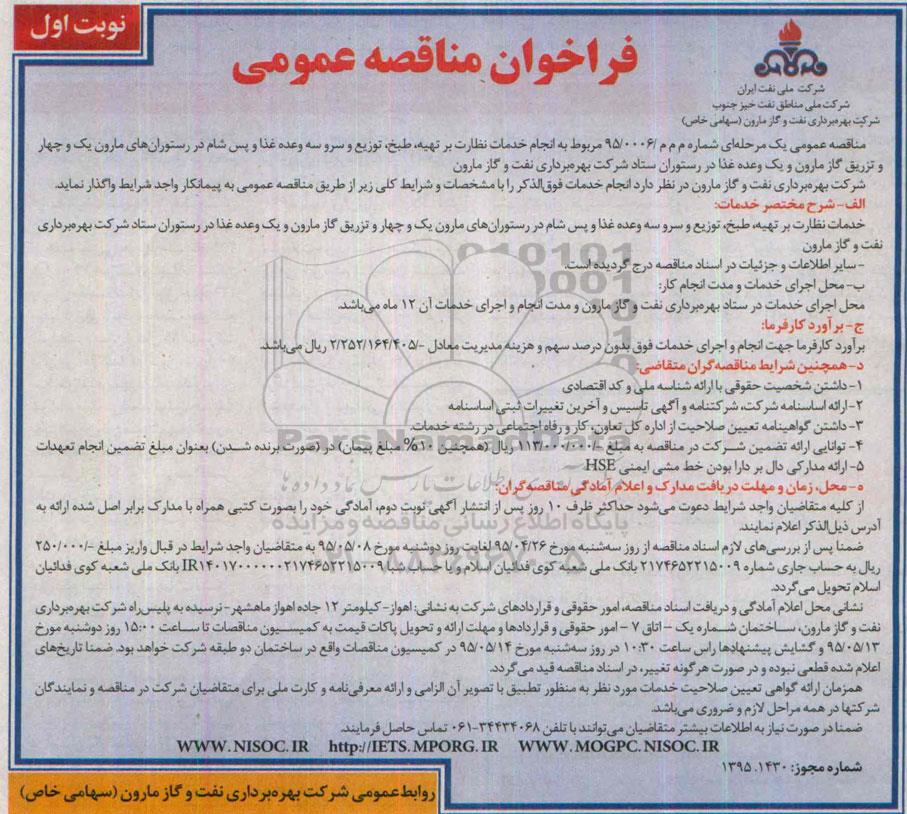 نوبت اول
فراخوان مناقصه عمومی
شرکت ملی نفت ایران
شرکت ملی مناطق نفت خیز جنوب
شرکت بهره‌برداری نفت و گاز مارون (سهامی خاص)
مناقصه عمومی یک مرحله‌ای شماره م م م /۹۵/۰۰۰۶ مربوط به انجام خدمات نظارت بر تهیه، طبخ، توزیع و سرو سه وعده غذا و پس شام در رستوران‌های مارون یک و چهار
و تزریق گاز مارون و یک وعده غذا در رستوران ستاد شرکت بهره‌برداری نفت و گاز مارون
شرکت بهره‌برداری نفت و گاز مارون در نظر دارد انجام خدمات فوق‌الذکر را با مشخصات و شرایط کلی زیر از طریق مناقصه عمومی به پیمانکار واجد شرایط واگذار نماید.
الف- شرح مختصر خدمات:
خدمات نظارت بر تهیه، طبخ، توزیع و سرو سه وعده غذا و پس شام در رستوران‌های مارون یک و چهار و تزریق گاز مارون و یک وعده غذا در رستوران ستاد شرکت بهره‌برداری
نفت و گاز مارون
-سایر اطلاعات و جزئیات در اسناد مناقصه درج گردیده است.
ب- محل اجرای خدمات و مدت انجام کار:
محل اجرای خدمات در ستاد بهره‌برداری نفت و گاز مارون و مدت انجام و اجرای خدمات آن ۱۲ ماه می‌باشد.
ج- برآورد کارفرما:
برآورد کارفرما جهت انجام و اجرای خدمات فوق بدون درصد سهم و هزینه مدیریت معادل -/۲/۲۵۲/۱۶۴/۴۰۵ ریال می‌باشد.
د- همچنین شرایط مناقصه‌گران متقاضی:
۱- داشتن شخصیت حقوقی با ارائه شناسه ملی و کد اقتصادی
۲- ارائه اساسنامه شرکت، شرکتنامه و آگهی تاسیس و آخرین تغییرات ثبتی اساسنامه
۳- داشتن گواهینامه تعیین صلاحیت از اداره کل تعاون، کار و رفاه اجتماعی در رشته خدمات.
۴- توانایی ارائه تضمین شرکت در مناقصه به مبلغ -/۱۱۳/۰۰۰/۰۰۰ ریال (همچنین ۱۰% مبلغ پیمان) در (صورت برنده شدن) بعنوان مبلغ تضمین انجام تعهدات
۵- ارائه مدارکی دال بر دارا بودن خط مشی ایمنی HSE
ه- محل، زمان و مهلت دریافت مدارک و اعلام آمادگی مناقصه‌گران:
از کلیه متقاضیان واجد شرایط دعوت می‌شود حداکثر ظرف ۱۰ روز پس از انتشار آگهی نوبت دوم، آمادگی خود را بصورت کتبی همراه با مدارک برابر اصل شده ارائه به
آدرس ذیل‌الذکر اعلام نمایند.
ضمنا پس از بررسی‌های لازم اسناد مناقصه از روز سه‌شنبه مورخ ۹۵/۰۴/۲۶ لغایت روز دوشنبه مورخ ۹۵/۰۵/۰۸ به متقاضیان واجد شرایط در قبال واریز مبلغ -/۲۵۰/۰۰۰
ریال به حساب جاری شماره ۲۱۷۴۶۵۲۲۱۵۰۰۹ بانک ملی شعبه کوی فدائیان اسلام و یا حساب شبا IR۱۴۰۱۷۰۰۰۰۰۰۲۱۷۴۶۵۲۲۱۵۰۰۹ بانک ملی شعبه کوی فدائیان
اسلام تحویل می‌گردد.
نشانی محل اعلام آمادگی و دریافت اسناد مناقصه، امور حقوقی و قراردادهای شرکت به نشانی: اهواز- کیلومتر ۱۲ جاده اهواز ماهشهر- نرسیده به پلیس‌راه شرکت بهره‌برداری
نفت و گاز مارون، ساختمان شماره یک – اتاق ۷ – امور حقوقی و قراردادها و مهلت ارائه و تحویل پاکات قیمت به کمیسیون مناقصات تا ساعت ۱۵:۰۰ روز دوشنبه مورخ
۹۵/۰۵/۱۳ و گشایش پیشنهادها راس ساعت ۱۰:۳۰ در روز سه‌شنبه مورخ ۹۵/۰۵/۱۴ در کمیسیون مناقصات واقع در ساختمان دو طبقه شرکت خواهد بود. ضمنا تاریخ‌های
اعلام شده قطعی نبوده و در صورت هرگونه تغییر، در اسناد مناقصه قید می‌گردد.
همزمان ارائه گواهی تعیین صلاحیت خدمات مورد نظر به منظور تطبیق با تصویر آن الزامی و ارائه معرفی‌نامه و کارت ملی برای متقاضیان شرکت در مناقصه و نمایندگان
شرکتها در همه مراحل لازم و ضروری می‌باشد.
ضمنا در صورت نیاز به اطلاعات بیشتر متقاضیان می‌توانند با تلفن ۰۶۱-۳۴۴۳۴۰۶۸ تماس حاصل فرمایند.
WWW.NISOC.IR http://IETS.MPORG.IR WWW.MOGPC.NISOC.IR
شماره مجوز: ۱۴۳۰. ۱۳۹۵
روابط عمومی شرکت بهره‌برداری نفت و گاز مارون (سهامی خاص)